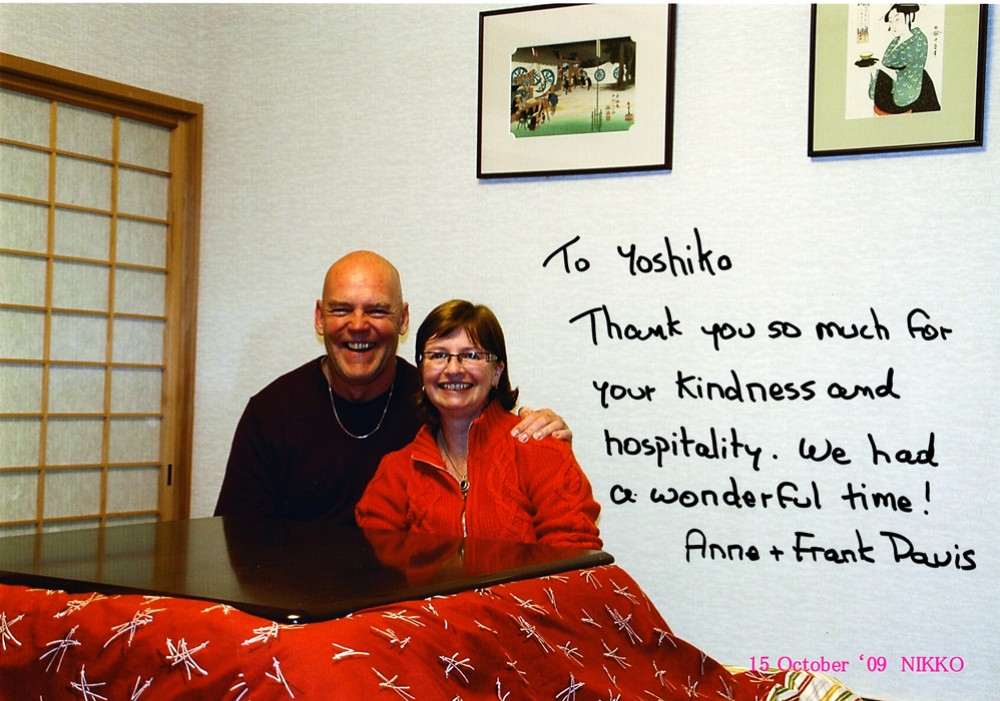 To Yoshiko
Thank you so much for
your kindness and
hospitality. We had
a wonderful time!
Anne + Frank Davis
15 October ‘09 NIKKO